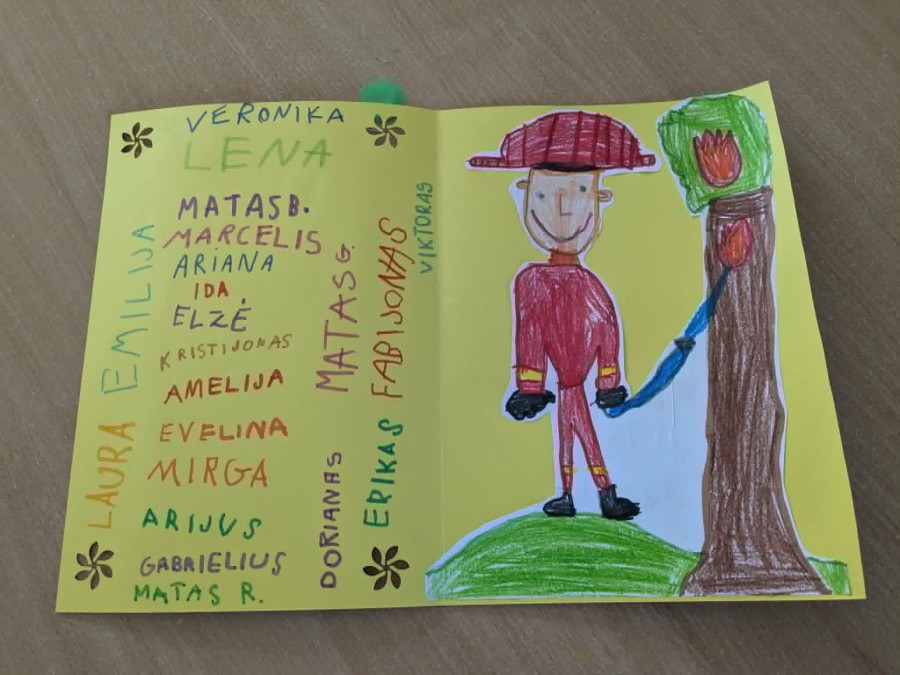 VERONIKA
LENA
MATAS B.
MARCELIS
ARIANA
IDA
ELZĖ
KRISTIJONAS
AMELIJA
EVELINA
MIRGA
ARIJUS
GABRIELIUS
MATAS R.
LAURA
EMILIJA
MATAS G.
DORIANAS
FABIJONAS
ERIKAS
VIKTORAS